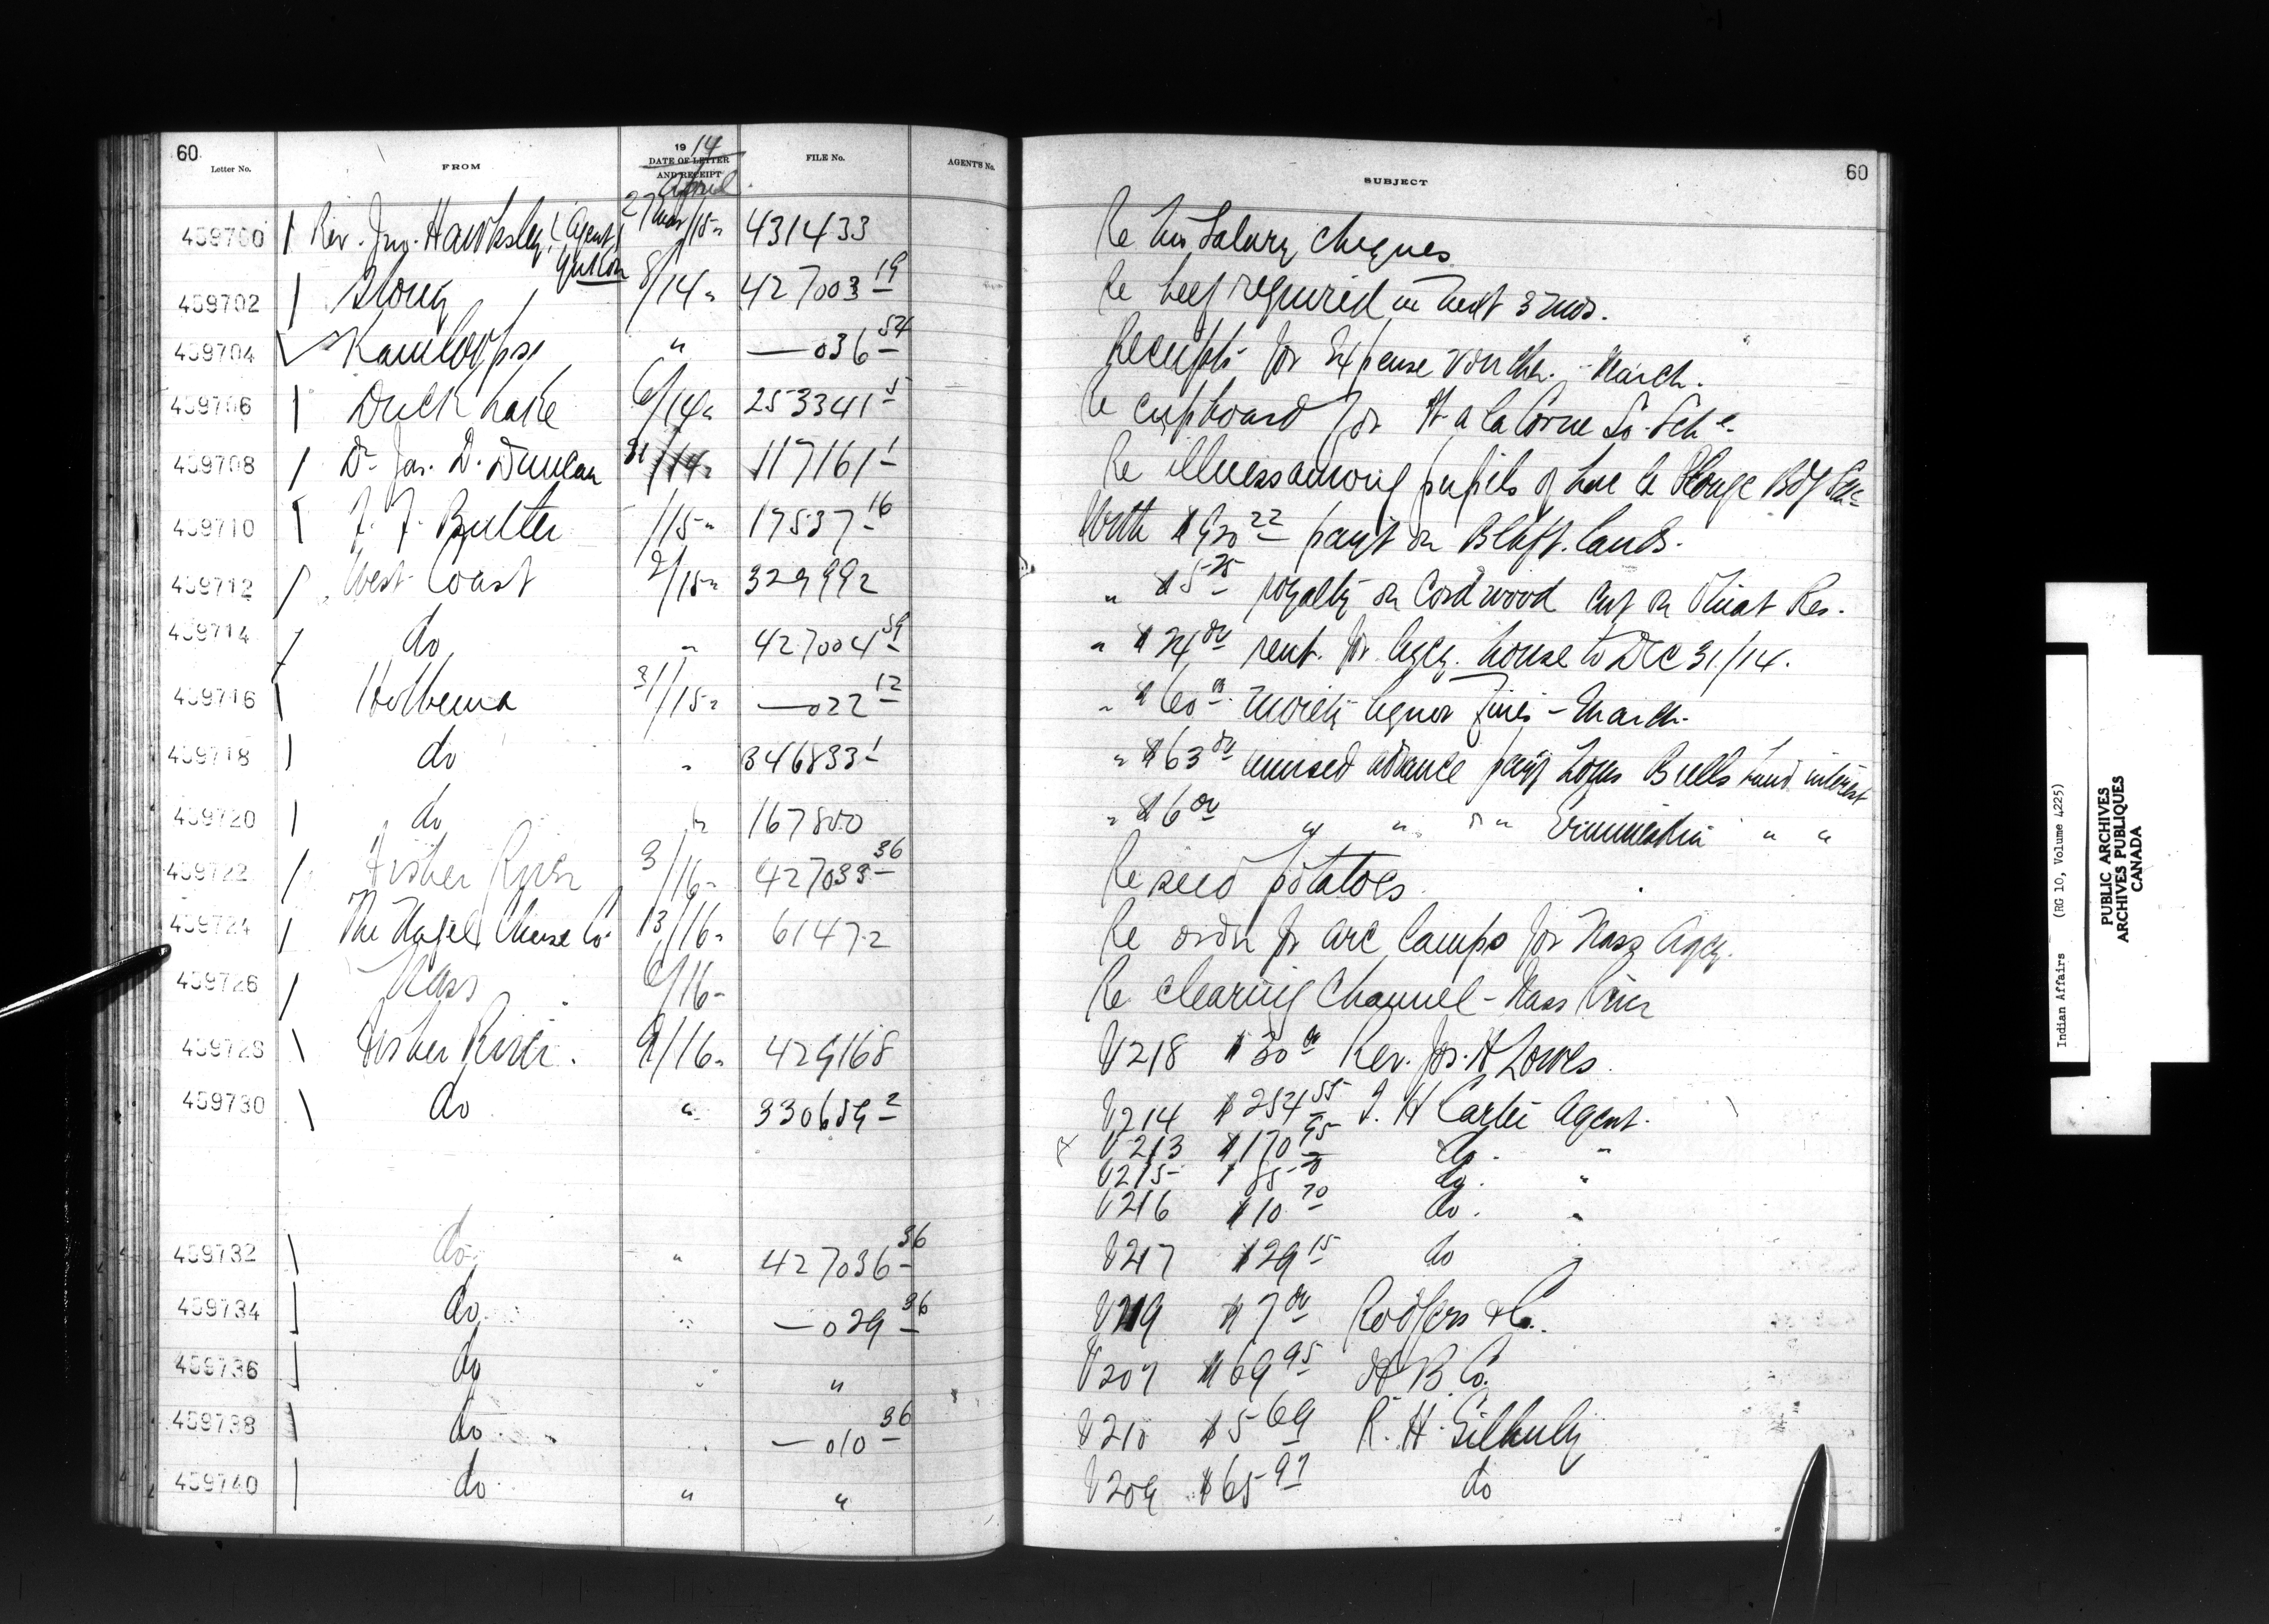 60
Letter No. FROM 19 14 DATE OF LETTER AND RECEIPT April FILE No. AGENT'S No.
SUBJECT 60
459700 Rev. Jno. Hawksley, (Agent) Yukon 27 Mar/15" 431433 Re his Salary Cheques
459702 Stony 8/14" 427003 19 Re beef required in next 3 mos.
459704 Kamloops " —036 54 Receipts for Expense Voucher. - March.
459706 Duck Lake 6/14" 253341 5 Re cupboard for Ft a la Corne So. Sch
459708 Dr Jas. D. Duncan 31/14" 117161 1 Re illness among pupils of Lac la Ronge Bdg Sch
459710 F. F. Butler /15" 17537 16 With $920 22 payt on lands.
459712 West Coast 2/15" 329992 " $5 25 royalty on Cordwood cut on Ohiat Res.
459714 do " 427004 59 " $24 00 rent for Agcy. house to Dec 31/14.
459716 Hobbema 31/15" —022 12 " $60 00 moiety liquor fines - March.
459718 do " 346833 1 " $63 00 unused advance payt Louis Bulls Land interest
459720 do " 167800 " $6 00 " " " Ermineskin " "
459722 Fisher River 3/16" 427033 36 Re seed potatoes
459724 The Nagel Chase Co. 13/16" 61472 Re order for arc lamps for Nass Agcy.
459726 Nass 6/16" Re clearing Channel - Nass River
459728 Fisher River. 9/16" 429168 V218 $30 00 Rev. Jos. H Lowes.
459730 do " 330659 2 V214 $254 55 T. H Carter Agent.
V213 $170 75 do. "
V215 $ 85 do. "
V216 $10 70 do. "
459732 do " 427036 36 V217 $29 15 do "
459734 do " —029 36 V219 $7 00 Rodgers & Co.
459736 do " " V207 $69 95 H B Co.
459738 do " —010 36 V210 $5 69 R. H. Gilhuly
459740 do " " V209 $65 97 do
Indian Affairs (RG 10, Volume 4225)
PUBLIC ARCHIVES
ARCHIVES PUBLIQUES
CANADA